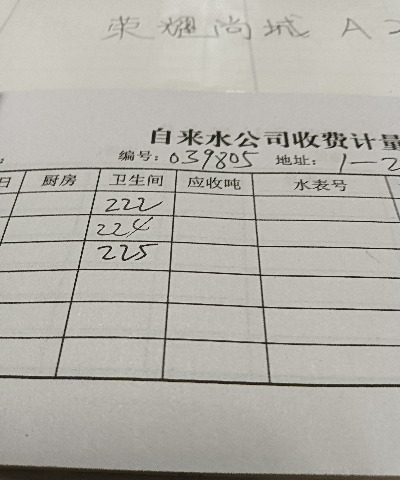 荣耀尚城 A2
自来水公司收费计量
编号: 039805 地址: 1-2
日 厨房 卫生间 应收吨 水表号
222
224
225